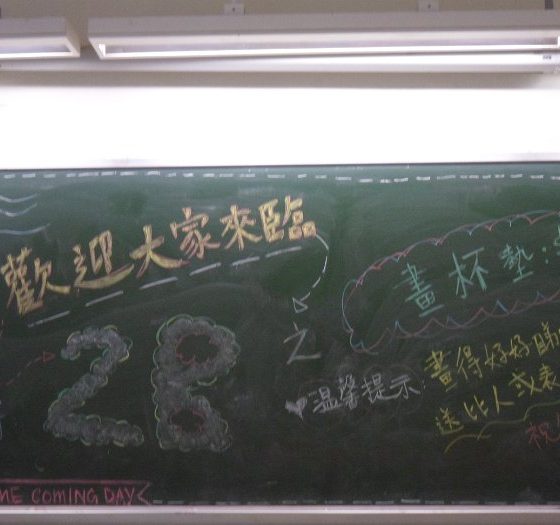 歡迎大家來臨
之
2B
畫杯墊:
♥溫馨提示:
畫得好好睇
送比人或者
祝
ME COMING DAY